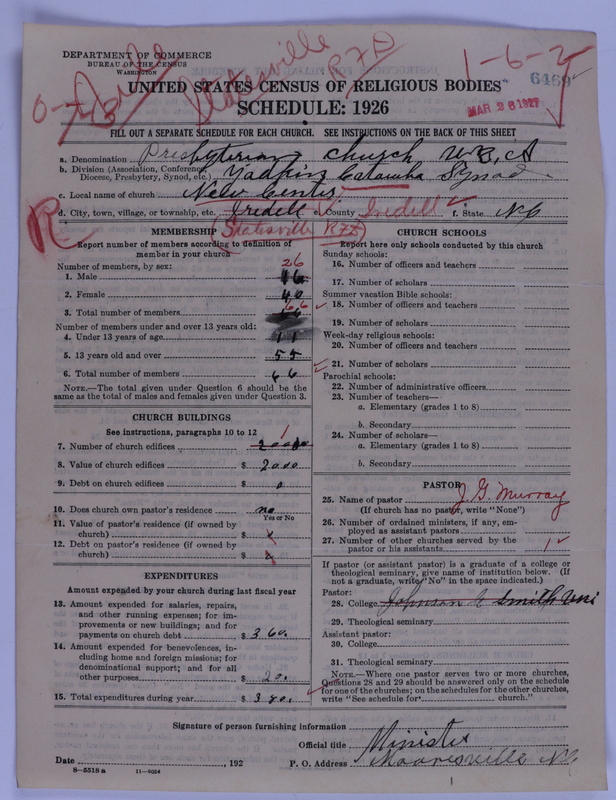 DEPARTMENT OF COMMERCE
BUREAU OF THE CENSUS
WASHINGTON
Statesville
RFD
1-6-2
6469
MAR 26 1927
UNITED STATES CENSUS OF RELIGIOUS BODIES
SCHEDULE: 1926
FILL OUT A SEPARATE SCHEDULE FOR EACH CHURCH. SEE INSTRUCTIONS ON THE BACK OF THIS SHEET
a. Denomination Presbyterian church U.S.A
b. Division (Association, Conference, Diocese, Presbytery, Synod, etc.) Yadkin Catawba Synod
c. Local name of church New Center
d. City, town, village, or township, etc. Iredell e. County Iredell f. State N.C
R
Statesville RFD
MEMBERSHIP
Report number of members according to definition of
member in your church
Number of members, by sex:
1. Male 16 26
2. Female 40
3. Total number of members 66
Number of members under and over 13 years old:
4. Under 13 years of age 11
5. 13 years old and over 55
6. Total number of members 66
NOTE.—The total given under Question 6 should be
same as the total of males and females given under Question 3.
CHURCH BUILDINGS
See instructions, paragraphs 10 to 12
7. Number of church edifices 1
8. Value of church edifices $ 2000
9. Debt on church edifices $ 0
10. Does church own pastor's residence no
Yes or No
11. Value of pastor's residence (if owned by
church) $ x
12. Debt on pastor's residence (if owned by
church) $ x
EXPENDITURES
Amount expended by your church during last fiscal year
13. Amount expended for salaries, repairs,
and other running expenses; for im-
provements or new buildings; and for
payments on church debt $ 360.
14. Amount expended for benevolences, in-
cluding home and foreign missions; for
denominational support; and for all
other purposes $ 20.
15. Total expenditures during year $ 380.
CHURCH SCHOOLS
Report here only schools conducted by this church
Sunday schools:
16. Number of officers and teachers
17. Number of scholars
Summer vacation Bible schools:
18. Number of officers and teachers
19. Number of scholars
Week-day religious schools:
20. Number of officers and teachers
21. Number of scholars
Parochial schools:
22. Number of administrative officers
23. Number of teachers—
a. Elementary (grades 1 to 8)
b. Secondary
24. Number of scholars—
a. Elementary (grades 1 to 8)
b. Secondary
PASTOR
25. Name of pastor J. G. Murray
(If church has no pastor, write "None")
26. Number of ordained ministers, if any, em-
ployed as assistant pastors
27. Number of other churches served by the
pastor or his assistants 1
If pastor (or assistant pastor) is a graduate of a college or
theological seminary, give name of institution below. (If
not a graduate, write "No" in the space indicated.)
Pastor:
28. College Johnson C Smith Uni
29. Theological seminary
Assistant pastor:
30. College
31. Theological seminary
NOTE.—Where one pastor serves two or more churches,
Questions 28 and 29 should be answered only on the schedule
for one of the churches; on the schedules for the other churches,
write "See schedule for church."
Signature of person furnishing information
Official title Minister
Date , 192 P. O. Address Mooresville N.C
8—5518 a 11—9024